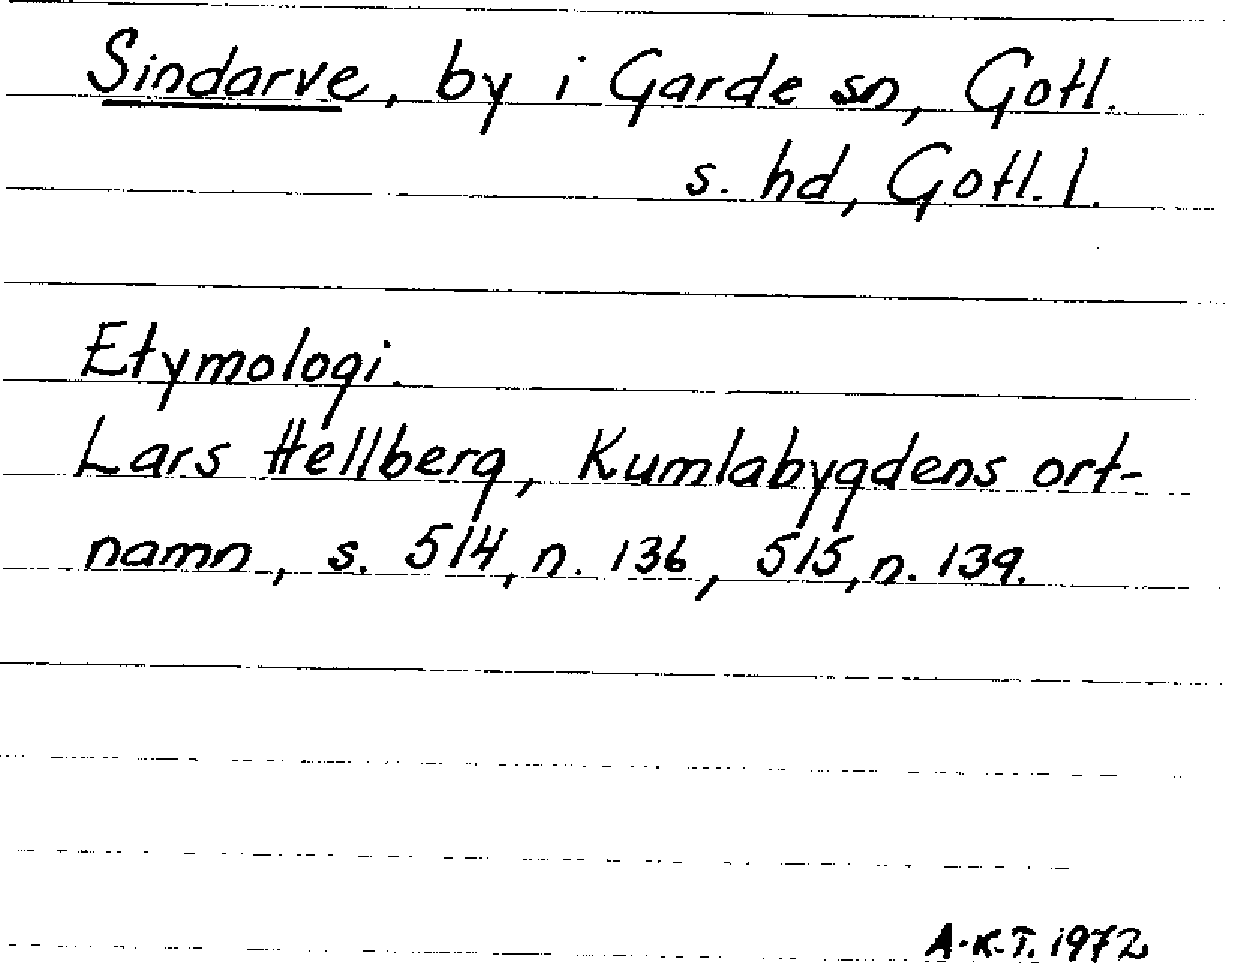 Sindarve, by i Garde sn, Gotl.
s. hd, Gotl. l.
Etymologi.
Lars Hellberg, Kumlabygdens ort-
namn, s. 514, n. 136, 515, n. 139.
A.K.T. 1972